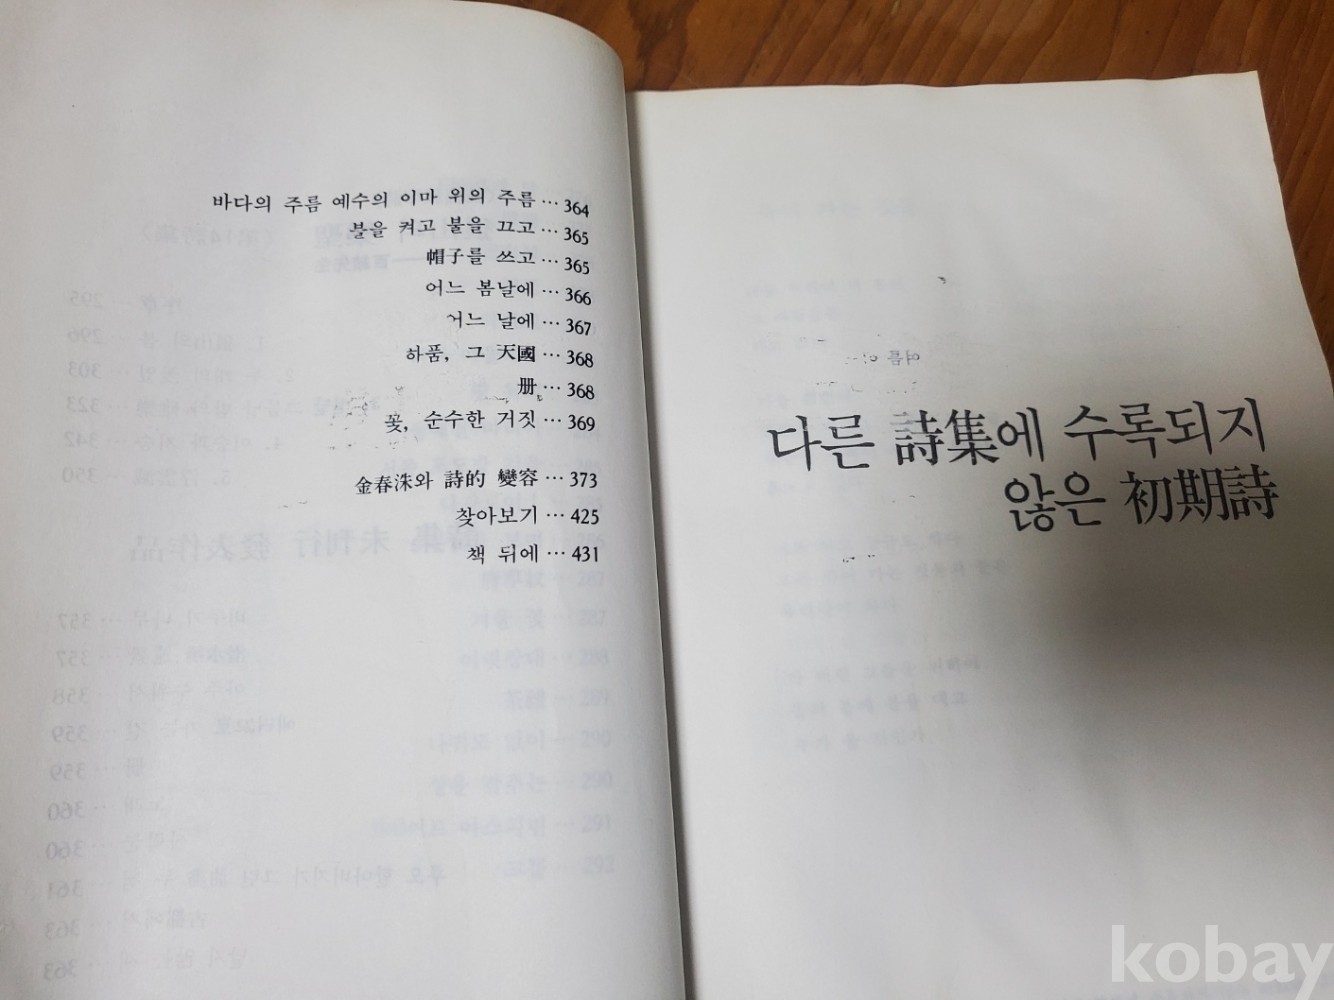 바다의 주름 예수의 이마 위의 주름 … 364
불을 켜고 불을 끄고 … 365
帽子를 쓰고 … 365
어느 봄날에 … 366
어느 날에 … 367
하품, 그 天國 … 368
册 … 368
꽃, 순수한 거짓 … 369
金春洙와 詩的 變容 … 373
찾아보기 … 425
책 뒤에 … 431
다른 詩集에 수록되지
않은 初期詩
kobay